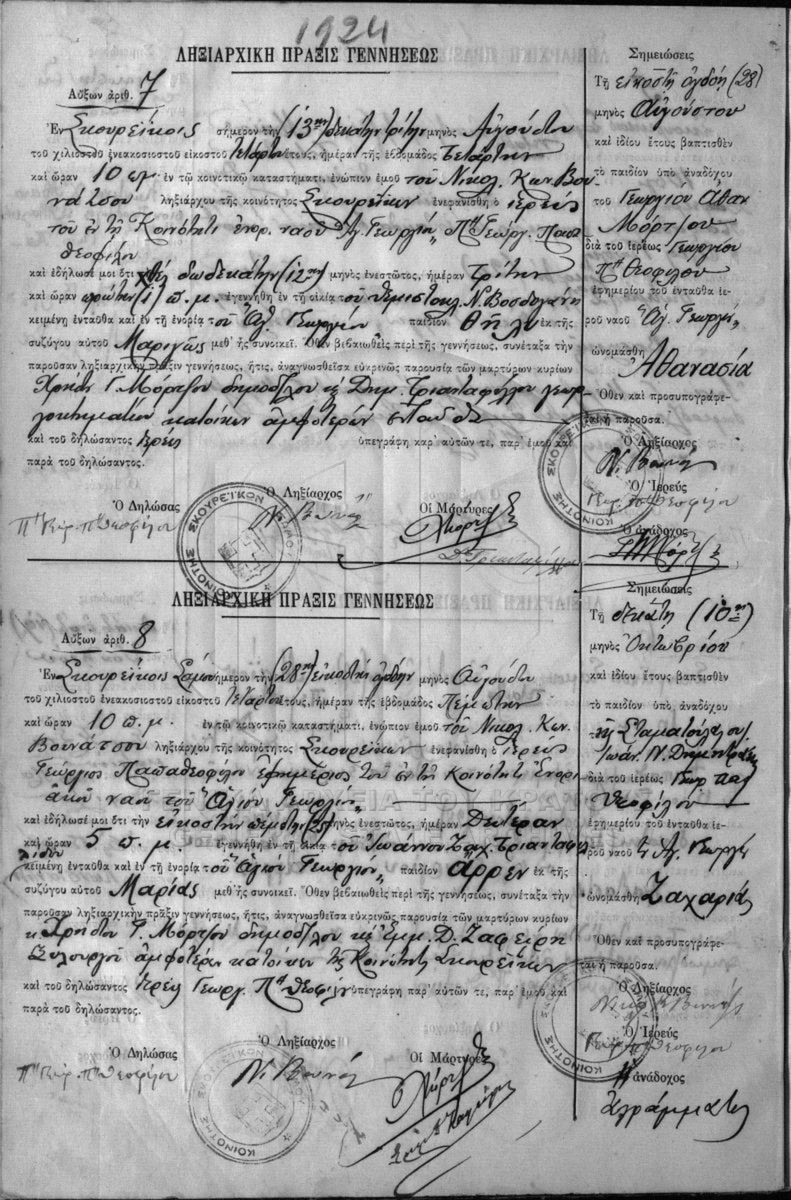 1924
ΛΗΞΙΑΡΧΙΚΗ ΠΡΑΞΙΣ ΓΕΝΝΗΣΕΩΣ
Αὔξων ἀριθ. 7
Ἐν Σκουρεΐκοις σήμερον τὴν (13ην) δεκάτην τρίτην μηνὸς Αὐγούστου
τοῦ χιλιοστοῦ ἐνεακοσιοστοῦ εἰκοστοῦ τετάρτου ἔτους, ἡμέραν τῆς ἑβδομάδος Τετάρτην
καὶ ὥραν 10 π.μ. ἐν τῷ κοινοτικῷ καταστήματι, ἐνώπιον ἐμοῦ τοῦ Νικολ. Κων. Βου-
νάτσου ληξιάρχου τῆς κοινότητος Σκουρεΐκων ἐνεφανίσθη ὁ ἱερεὺς
τοῦ ἐν τῇ Κοινότητι ἐνορ. ναοῦ Ἁγ. Γεωργίου Γεώργ. Παπα
θεοφίλου
καὶ ἐδήλωσέ μοι ὅτι δωδεκάτην (12ην) μηνὸς ἐνεστῶτος, ἡμέραν Τρίτην
καὶ ὥραν πρώτην (1) π.μ. ἐγεννήθη ἐν τῇ οἰκίᾳ τοῦ Θεμιστοκλ. Ν. Βοσδογάνη
κειμένῃ ἐνταῦθα καὶ ἐν τῇ ἐνορίᾳ τοῦ Ἁγ. Γεωργίου παιδίον θῆλυ ἐκ τῆς
συζύγου αὐτοῦ Μαριγῶς μεθ' ἧς συνοικεῖ. Ὅθεν βεβαιωθεὶς περὶ τῆς γεννήσεως, συνέταξα τὴν
παροῦσαν ληξιαρχικὴν πρᾶξιν γεννήσεως, ἥτις, ἀναγνωσθεῖσα εὐκρινῶς παρουσίᾳ τῶν μαρτύρων κυρίων
Χρήστ. Γ. Μόρτζου δημοδ/λου κ Δημ. Τριανταφύλλου γεωρ-
γοκτηματίου κατοίκων ἀμφοτέρων ἐνταῦθα
καὶ τοῦ δηλώσαντος ἱερέως ὑπεγράφη παρ' αὐτῶν τε, παρ' ἐμοῦ καὶ
παρὰ τοῦ δηλώσαντος.
Ὁ Δηλώσας Ὁ Ληξίαρχος Οἱ Μάρτυρες
ΚΟΙΝΟΤΗΣ ΣΚΟΥΡΕΪΚΩΝ
Σημειώσεις
Τῇ εἰκοστῇ ὀγδόῃ (28)
μηνὸς Αὐγούστου
καὶ ἰδίου ἔτους βαπτισθὲν
τὸ παιδίον ὑπὸ ἀναδόχου
τοῦ Γεωργίου Ἀθαν
Μόρτζου
διὰ τοῦ ἱερέως Γεωργίου
Θεοφίλου
ἐφημερίου τοῦ ἐνταῦθα ἱε-
ροῦ ναοῦ Ἁγ. Γεωργίου
ὠνομάσθη
Ἀθανασία
Ὅθεν καὶ προσυπογράφε-
ται ἡ παροῦσα.
Ὁ Ληξίαρχος
Ὁ Ἱερεὺς
Ὁ ἀνάδοχος
ΛΗΞΙΑΡΧΙΚΗ ΠΡΑΞΙΣ ΓΕΝΝΗΣΕΩΣ
Αὔξων ἀριθ. 8
Ἐν Σκουρεΐκοις Σάμου σήμερον τὴν (28ην) εἰκοστὴν ὀγδόην μηνὸς Αὐγούστου
τοῦ χιλιοστοῦ ἐνεακοσιοστοῦ εἰκοστοῦ τετάρτου ἔτους, ἡμέραν τῆς ἑβδομάδος Πέμπτην
καὶ ὥραν 10 π.μ. ἐν τῷ κοινοτικῷ καταστήματι, ἐνώπιον ἐμοῦ τοῦ Νικολ. Κων.
Βουνάτσου ληξιάρχου τῆς κοινότητος Σκουρεΐκων ἐνεφανίσθη ὁ ἱερεὺς
Γεώργιος Παπαθεοφίλου ἐφημέριος τοῦ ἐν τῇ Κοινότητι ἐνορι
ακοῦ ναοῦ τοῦ Ἁγίου Γεωργίου
καὶ ἐδήλωσέ μοι ὅτι τὴν εἰκοστὴν πέμπτην (25) μηνὸς ἐνεστῶτος, ἡμέραν Δευτέραν
καὶ ὥραν 5 π.μ. ἐγεννήθη ἐν τῇ οἰκίᾳ τοῦ Ἰωάννου Ζαχ. Τριανταφυλ
λίδου κειμένῃ ἐνταῦθα καὶ ἐν τῇ ἐνορίᾳ τοῦ Ἁγίου Γεωργίου παιδίον ἄρρεν ἐκ τῆς
συζύγου αὐτοῦ Μαρίας μεθ' ἧς συνοικεῖ. Ὅθεν βεβαιωθεὶς περὶ τῆς γεννήσεως, συνέταξα τὴν
παροῦσαν ληξιαρχικὴν πρᾶξιν γεννήσεως, ἥτις, ἀναγνωσθεῖσα εὐκρινῶς παρουσίᾳ τῶν μαρτύρων κυρίων
κ Χρήστου Γ. Μόρτζου δημοδ/λου κ Ἐμμ. Δ. Ζαφείρη
ξυλουργοῦ ἀμφοτέρων κατοίκων τῆς Κοινότητος Σκουρεΐκων
καὶ τοῦ δηλώσαντος ἱερέως Γεωργ. θεοφίλου ὑπεγράφη παρ' αὐτῶν τε, παρ' ἐμοῦ καὶ
παρὰ τοῦ δηλώσαντος.
Ὁ Δηλώσας Ὁ Ληξίαρχος Οἱ Μάρτυρες
Σημειώσεις
Τῇ δεκάτῃ (10)
μηνὸς Ὀκτωβρίου
καὶ ἰδίου ἔτους βαπτισθὲν
τὸ παιδίον ὑπὸ ἀναδόχου
τῆς
Ἰωάν. Ν.
διὰ τοῦ ἱερέως Γεωρ Παπ
Θεοφίλου
ἐφημερίου τοῦ ἐνταῦθα ἱε-
ροῦ ναοῦ Ἁγ. Γεωργ
ὠνομάσθη Ζαχαρίας
Ὅθεν καὶ προσυπογράφε-
ται ἡ παροῦσα.
Ὁ Ληξίαρχος
Ὁ Ἱερεὺς
Ἡ ἀνάδοχος
ἀγράμματος